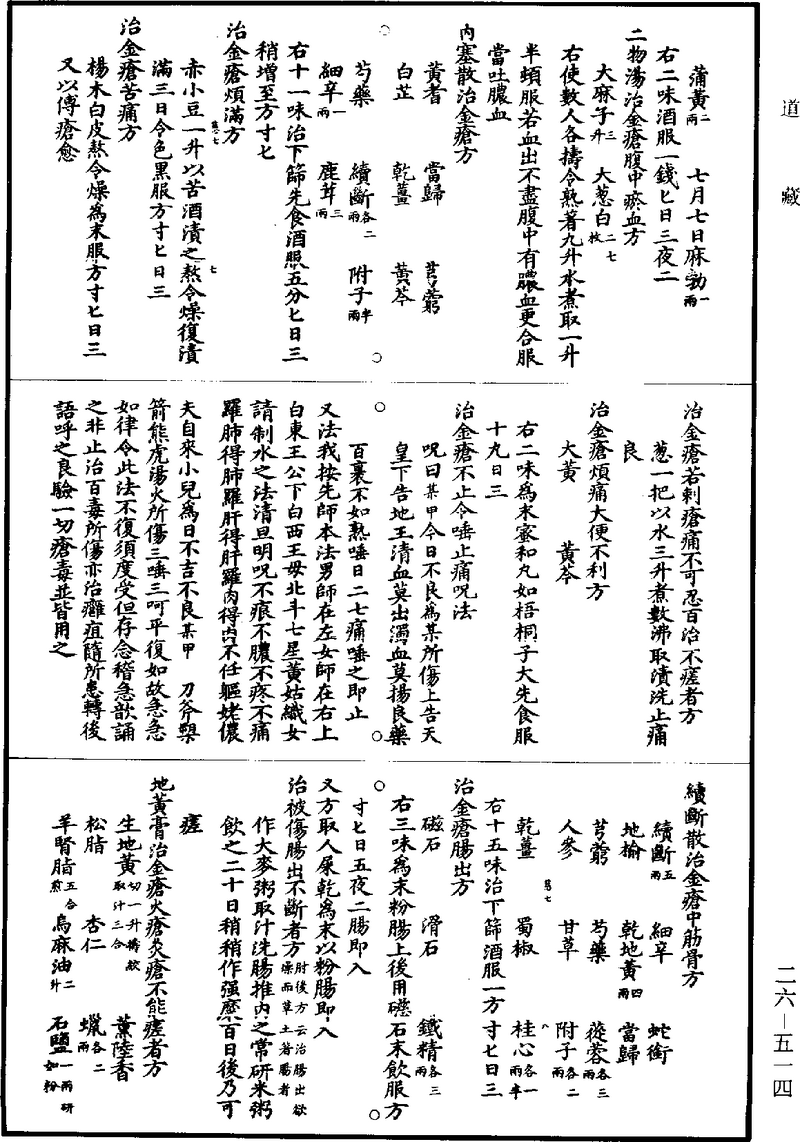 道藏
蒲黃二兩　七月七日麻勃一兩
右二味酒服一錢匕日三夜二
二物湯治金瘡腹中瘀血方
大麻子三升　大葱白二七枚
右使數人各擣令熟著九升水煮取一升
半頓服若血出不盡腹中有膿血更合服
當吐膿血
內塞散治金瘡方
黃耆　當歸　芎藭
白芷　乾薑　黃芩
芍藥　續斷各二兩　附子半兩
細辛一兩　鹿茸三兩
右十一味治下篩先食酒服五分匕日三
稍增至方寸匕
治金瘡煩滿方
赤小豆一升以苦酒漬之熬令燥復漬
滿三日令色黑服方寸匕日三
治金瘡苦痛方
楊木白皮熬令燥為末服方寸匕日三
又以傅瘡愈
治金瘡若刺瘡痛不可忍百治不瘥者方
葱一把以水三升煮數沸取漬洗止痛
良
治金瘡煩痛大便不利方
大黃　黃芩
右二味為末蜜和丸如梧桐子大先食服
十丸日三
治金瘡不止令唾止痛呪法
呪曰某甲今日不良為某所傷上告天
皇下告地王清血莫出濁血莫揚良藥
百裹不如熟唾日二七痛唾之即止
又法我按先師本法男師在左女師在右上
白東王公下白西王母北斗七星黃姑織女
請制水之法清旦明呪不痕不膿不疼不痛
羅肺得肺羅肝得肝羅肉得肉不任軀姥儂
夫自來小兒為日不吉不良某甲　刀斧槊
箭熊虎湯火所傷三唾三呵平復如故急急
如律令此法不復須度受但存念稽急歆誦
之非止治百毒所傷亦治癰疽隨所患轉後
語呼之良驗一切瘡毒並皆用之
續斷散治金瘡中筋骨方
續斷五兩　細辛　蛇銜
地榆　乾地黃四兩　當歸
芎藭　芍藥　蓯蓉各三兩
人參　甘草　附子各二兩
乾薑　蜀椒　桂心各一兩半
右十五味治下篩酒服一方寸匕日三
治金瘡腸出方
磁石　滑石　鐵精各三
右三味為末粉腸上後用磁石末飲服方
寸匕日五夜二腸即入
又方取人屎乾為末以粉腸即入
治被傷腸出不斷者方肘後方云治腸出欲燥而草土著腸者
作大麥粥取汁洗腸推內之常研米粥
飲之二十日稍稍作强糜百日後乃可
瘥
地黃膏治金瘡火瘡灸瘡不能瘥者方
生地黃切一升擣絞取汁三合　黃陸香
松脂　杏仁　蠟各二兩
羊腎脂五合煎　烏麻油二升　石鹽一兩研如粉
二六—五一四